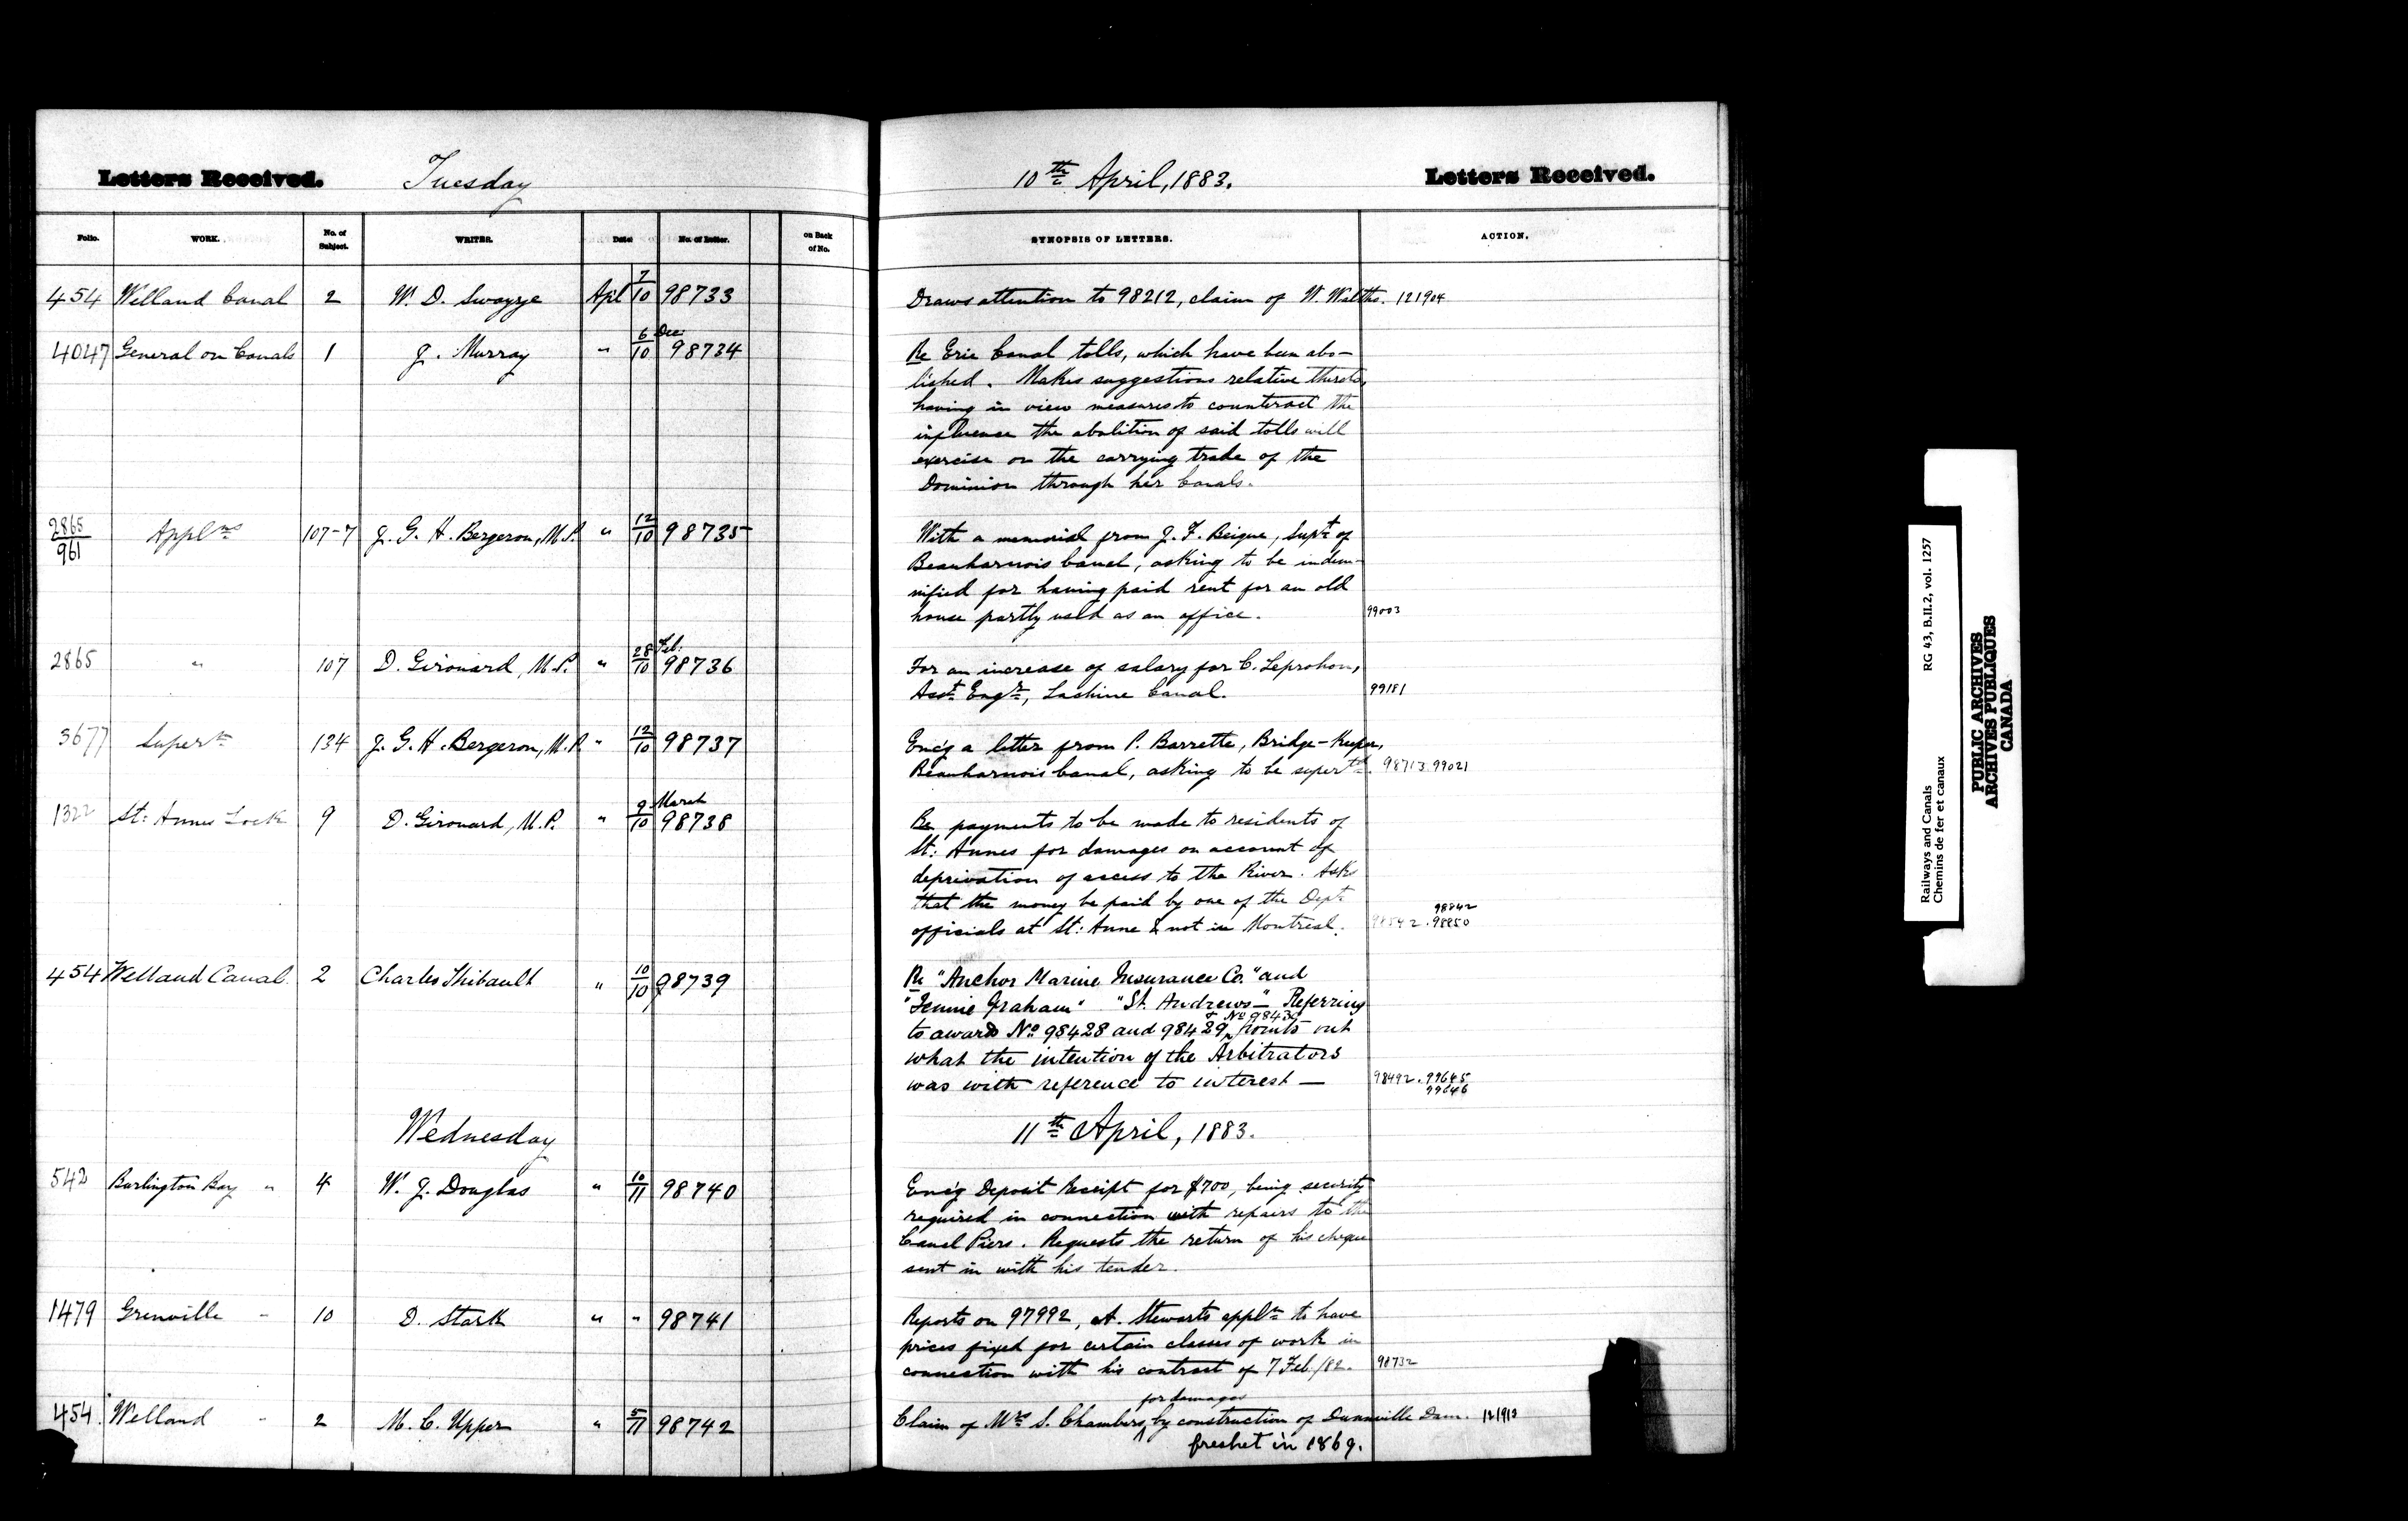 Letters Received. Tuesday 10th April, 1883. Letters Received.
Folio. WORK. No. of Subject. WRITER. Date. No. of Letter. on Back of No. SYNOPSIS OF LETTERS. ACTION.
454 Welland Canal 2 W. D. Swayze Apl 7/10 98733 Draws attention to 98212, claim of W. 121904
4047 General on Canals 1 J. Murray " 6 Dec:/10 98734 Re Erie Canal tolls, which have been abo-
lished. Makes suggestions relative thereto,
having in view measures to counteract the
influence the abolition of said tolls will
exercise on the carrying trade of the
Dominion through her Canals.
2865/961 Applns 107-7 J. G. H. Bergeron, M.P. " 12/10 98735 With a memorial from J. F. Beique, Supt. of
Beauharnois Canal, asking to be indem-
nified for having paid rent for an old
house partly used as an office. 99003
2865 " 107 D. Girouard, M.P. " 28 Feb:/10 98736 For an increase of salary for C. Leprohon,
Asst. Engr., Lachine Canal. 99181
3677 Supern 134 J. G. H. Bergeron, M.P. " 12/10 98737 Enc'g a letter from P. Barrette, Bridge-Keeper,
Beauharnois Canal, asking to be supertd. 98713. 99021
1322 St: Annes Lock 9 D. Girouard, M.P. " 9 March/10 98738 Re payments to be made to residents of
St: Annes for damages on account of
deprivation of access to the River. Asks
that the money be paid by one of the Dept.
officials at St: Anne & not in Montreal. 98542. 98842 98850
454 Welland Canal. 2 Charles Thibault " 10/10 98739 Re "Anchor Marine Insurance Co." and
"Jennie Graham" "St. Andrews—" Referring
to award No 98428 and 98429, & No 98430 points out
what the intention of the Arbitrators
was with reference to interest — 98492. 99645 99646
Wednesday 11th April, 1883.
542 Burlington Bay " 4 W. J. Douglas " 10/11 98740 Enc'g Deposit Receipt for $700, being security
required in connection with repairs to the
Canal Piers. Requests the return of his cheque
sent in with his tender.
1479 Grenville " 10 D. Stark " " 98741 Reports on 97992, A. Stewarts appln to have
prices fixed for certain classes of work in
connection with his contract of 7 Feb./82. 98732
454. Welland " 2 M. C. Upper " 5/11 98742 Claim of Mrs S. Chambers, for damages by construction of Dunnville Dam. 121913
freshet in 1869.
Railways and Canals RG 43, B.II.2, vol. 1257
Chemins de fer et canaux
PUBLIC ARCHIVES
ARCHIVES PUBLIQUES
CANADA